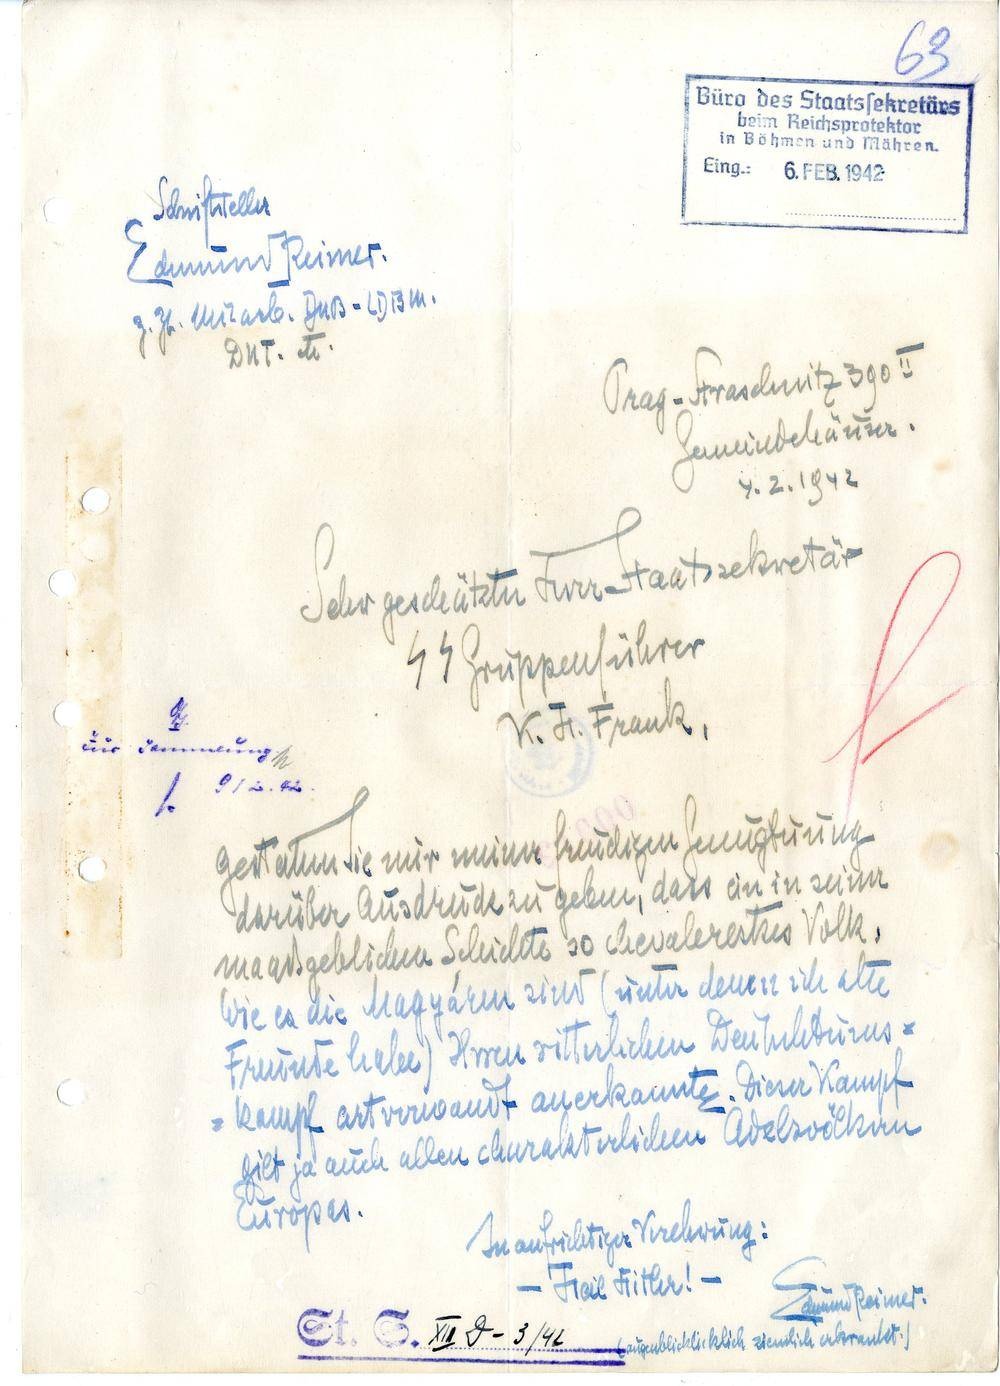 63
Büro des Staatssekretärs
beim Reichsprotektor
in Böhmen und Mähren.
Eing.: 6. FEB. 1942
Schriftsteller
Edmund Reimer.
z. Zt. Mitarb. DNB - LDBM.
DNT.
Prag-Straschnitz 390 II
Gemeindehäuser.
4.2.1942
Sehr geschätzter Herr Staatssekretär
SS Gruppenführer
K. H. Frank,
Zur Sammlung
9/2.42.
gestatten Sie mir meiner freudigen Genugtuung
darüber Ausdruck zu geben, dass ein in seiner
maassgeblichen Schichte so chevalereskes Volk,
wie es die Magyáren sind (unter denen ich alte
Freunde habe) Ihren ritterlichen Deutschtums=
=kampf artverwandt anerkannte. Dieser Kampf
gilt ja auch allen charakterlichen Adelsvölkern
Europas.
In aufrichtiger Verehrung:
- Heil Hitler! -
Edmund Reimer.
(augenblicklich ziemlich erkrankt.)
St. S. XIII D - 3/42